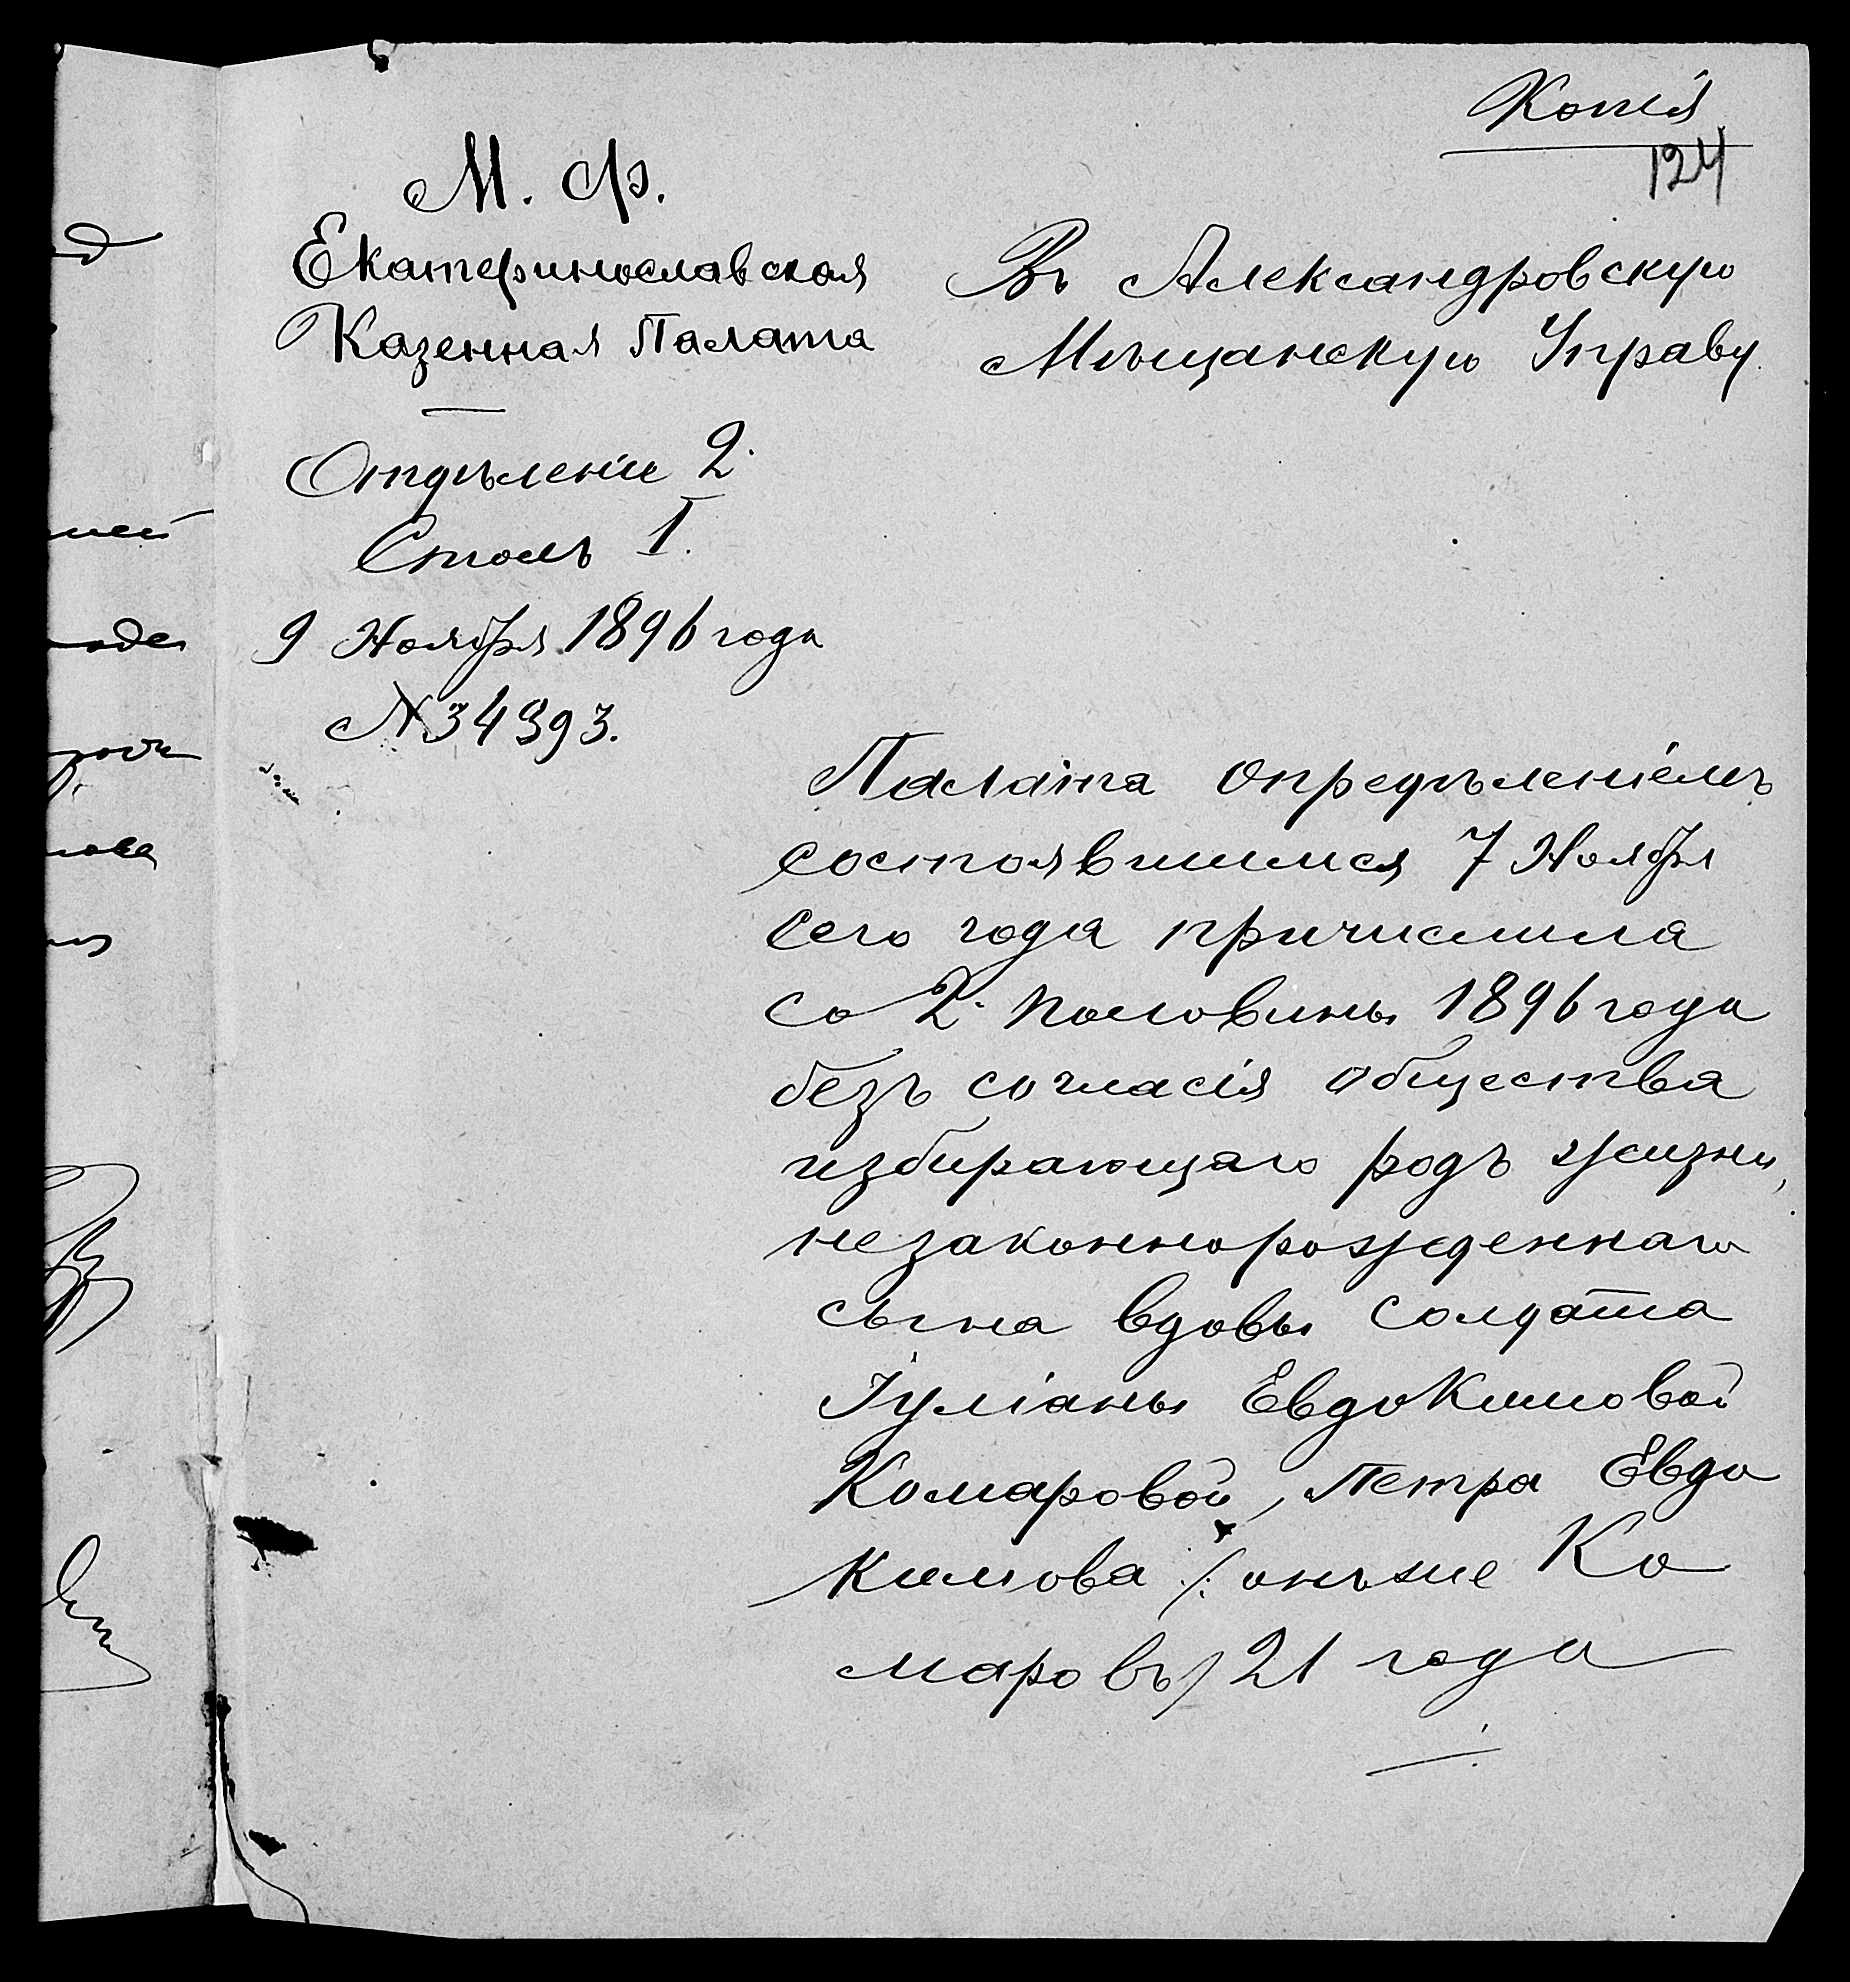 Копія
124
М. Ф.
Екатеринославская
Казенная Палата
Отдѣленіе 2.
Столъ I.
9 Ноября 1896 года
№ 34393.
Въ Александровскую
Мѣщанскую Управу.
Палата опредѣленіемъ
состоявшимся 7 Ноября
сего года причислила
со 2. половины 1896 года
безъ согласія общества
избирающаго родъ жизни,
незаконнорожденнаго
сына вдовы солдата
Іуліаны Евдокимовой
Комаровой, Петра Евдо
кимова /: онъ же Ко
маровъ/ 21 года